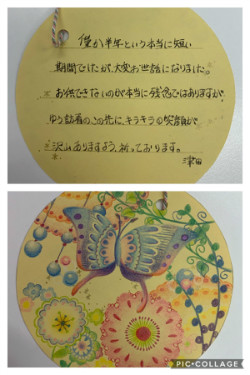 僅か半年という本当に短い
期間でしたが、大変お世話になりました。
お供できないのが本当に残念ではありますが、
ゆう
の
この先に、キラキラの笑顔が
沢山ありますよう、祈っております。
津田
PIC•COLLAGE